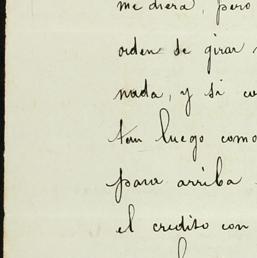 me diera, pero
orden de girar
nada, y si
tan luego como
para arriba
el credito con